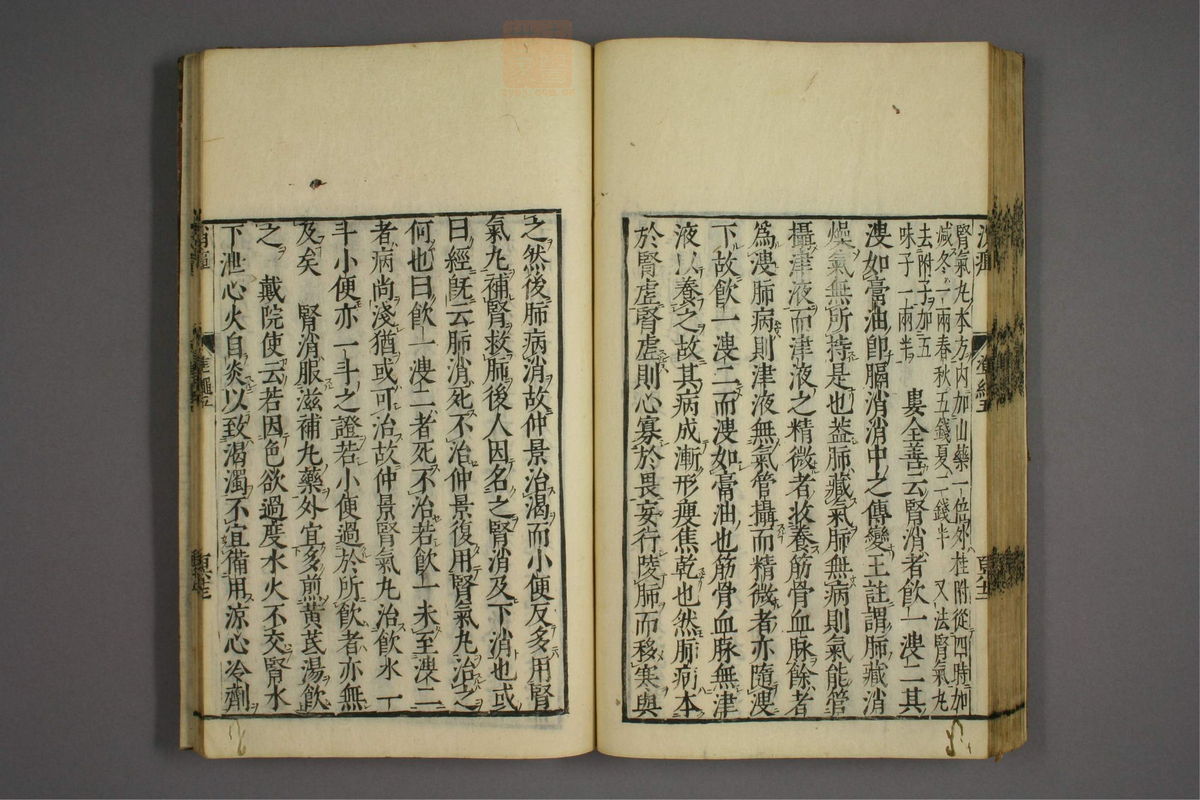 腎氣丸本方内加山藥一倍外桂附從四時加
減冬一兩春秋五錢夏二錢半　又法腎氣丸
去附子加五
味子一兩半
婁全善云腎消者飲一溲二其
溲如膏油即膈消消中之傳變王註謂肺藏消
燥氣無所持是也蓋肺藏氣肺無病則氣能管
攝津液而津液之精微者收養筋骨血脉餘者
爲溲肺病則津液無氣管攝而精微者亦隨溲
下故飲一溲二而溲如膏油也筋骨血脉無津
液以養之故其病成漸形瘦焦乾也然肺病本
於腎虚腎虚則心寡於畏妄行陵肺而移寒與
之然後肺病消故仲景治渴而小便反多用腎
氣丸補腎救肺後人因名之腎消及下消也或
曰經既云肺消死不治仲景復用腎氣丸治之
何也曰飲一溲二者死不治若飲一未至溲二
者病尚淺猶或可治故仲景腎氣丸治飲水一
斗小便亦一斗之證若小便過於所飲者亦無
及矣　腎消服滋補丸藥外宜多煎黄芪湯飲
之　戴院使云若因色欲過度水火不交腎水
下泄心火自炎以致渴濁不宜備用涼心冷劑